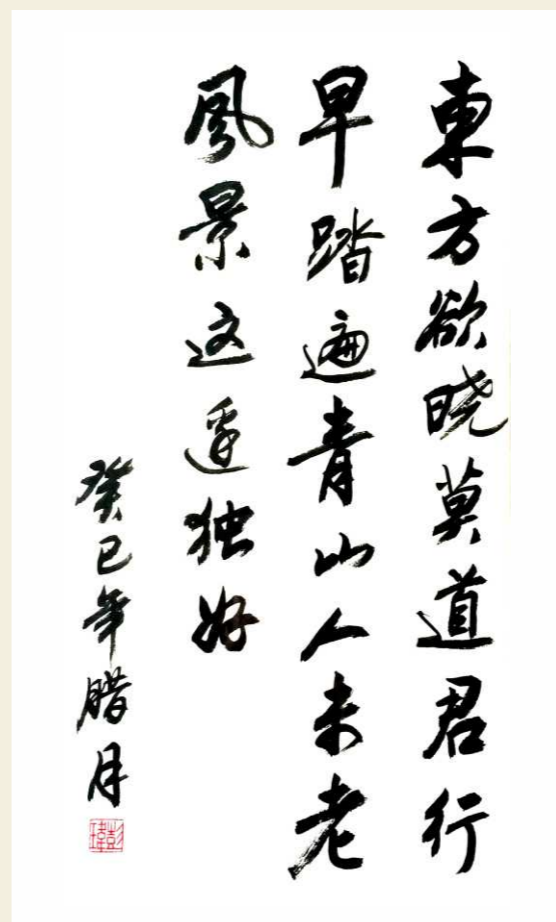 東方欲晓莫道君行
早踏遍青山人未老
風景这邊独好
癸巳年腊月
彭瑋